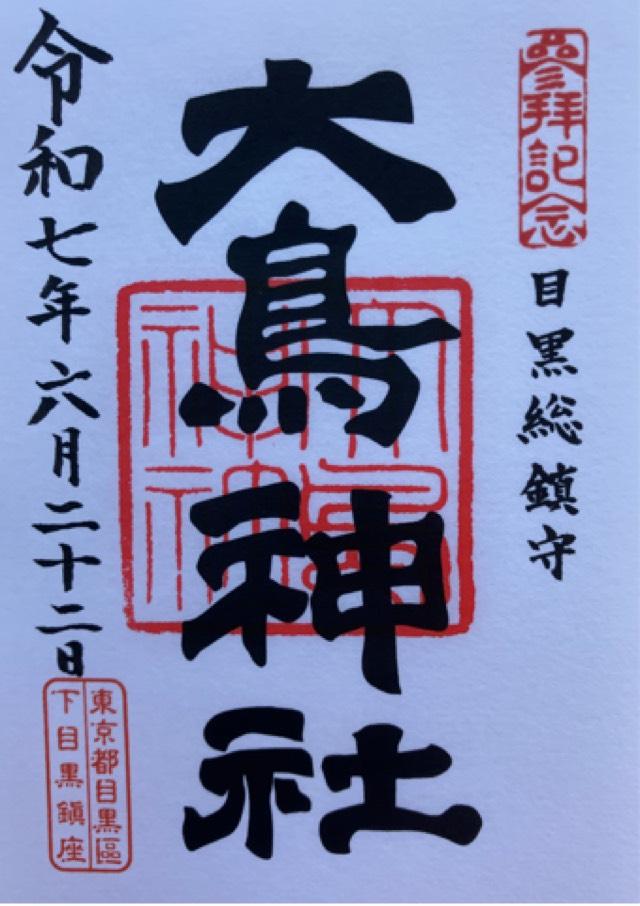 參拜記念
目黒総鎮守
大鳥神社
令和七年六月二十二日
東京都目黒區
下目黒鎮座